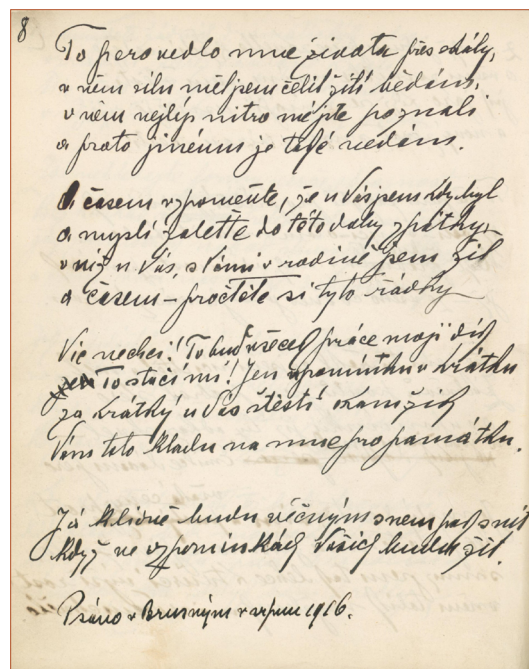 8
To pero vedlo mne života přes skály,
v něm sílu měl jsem čelit žití bědám,
v něm nejlíp nitro mé jste poznali
a proto jinému je též nedám.
A časem vzpomeňte, že u Vás jsem kdy byl
a myslí zaleťte do této doby zpátky,
v níž u Vás, s Vámi v rodině jsem žil
a časem – pročtěte si tyto řádky
Víc nechci! To buď všeck práce mojí dík
To stačí mi! Jen vzpomínku v krátku
za krátký u Vás štěstí okamžik
Vám tuto kladu na mne pro památku.
Já klidně budu věčným snem pak snít
když ve vzpomínkách Vašich budu žít.
Psáno v srpnu 1916.